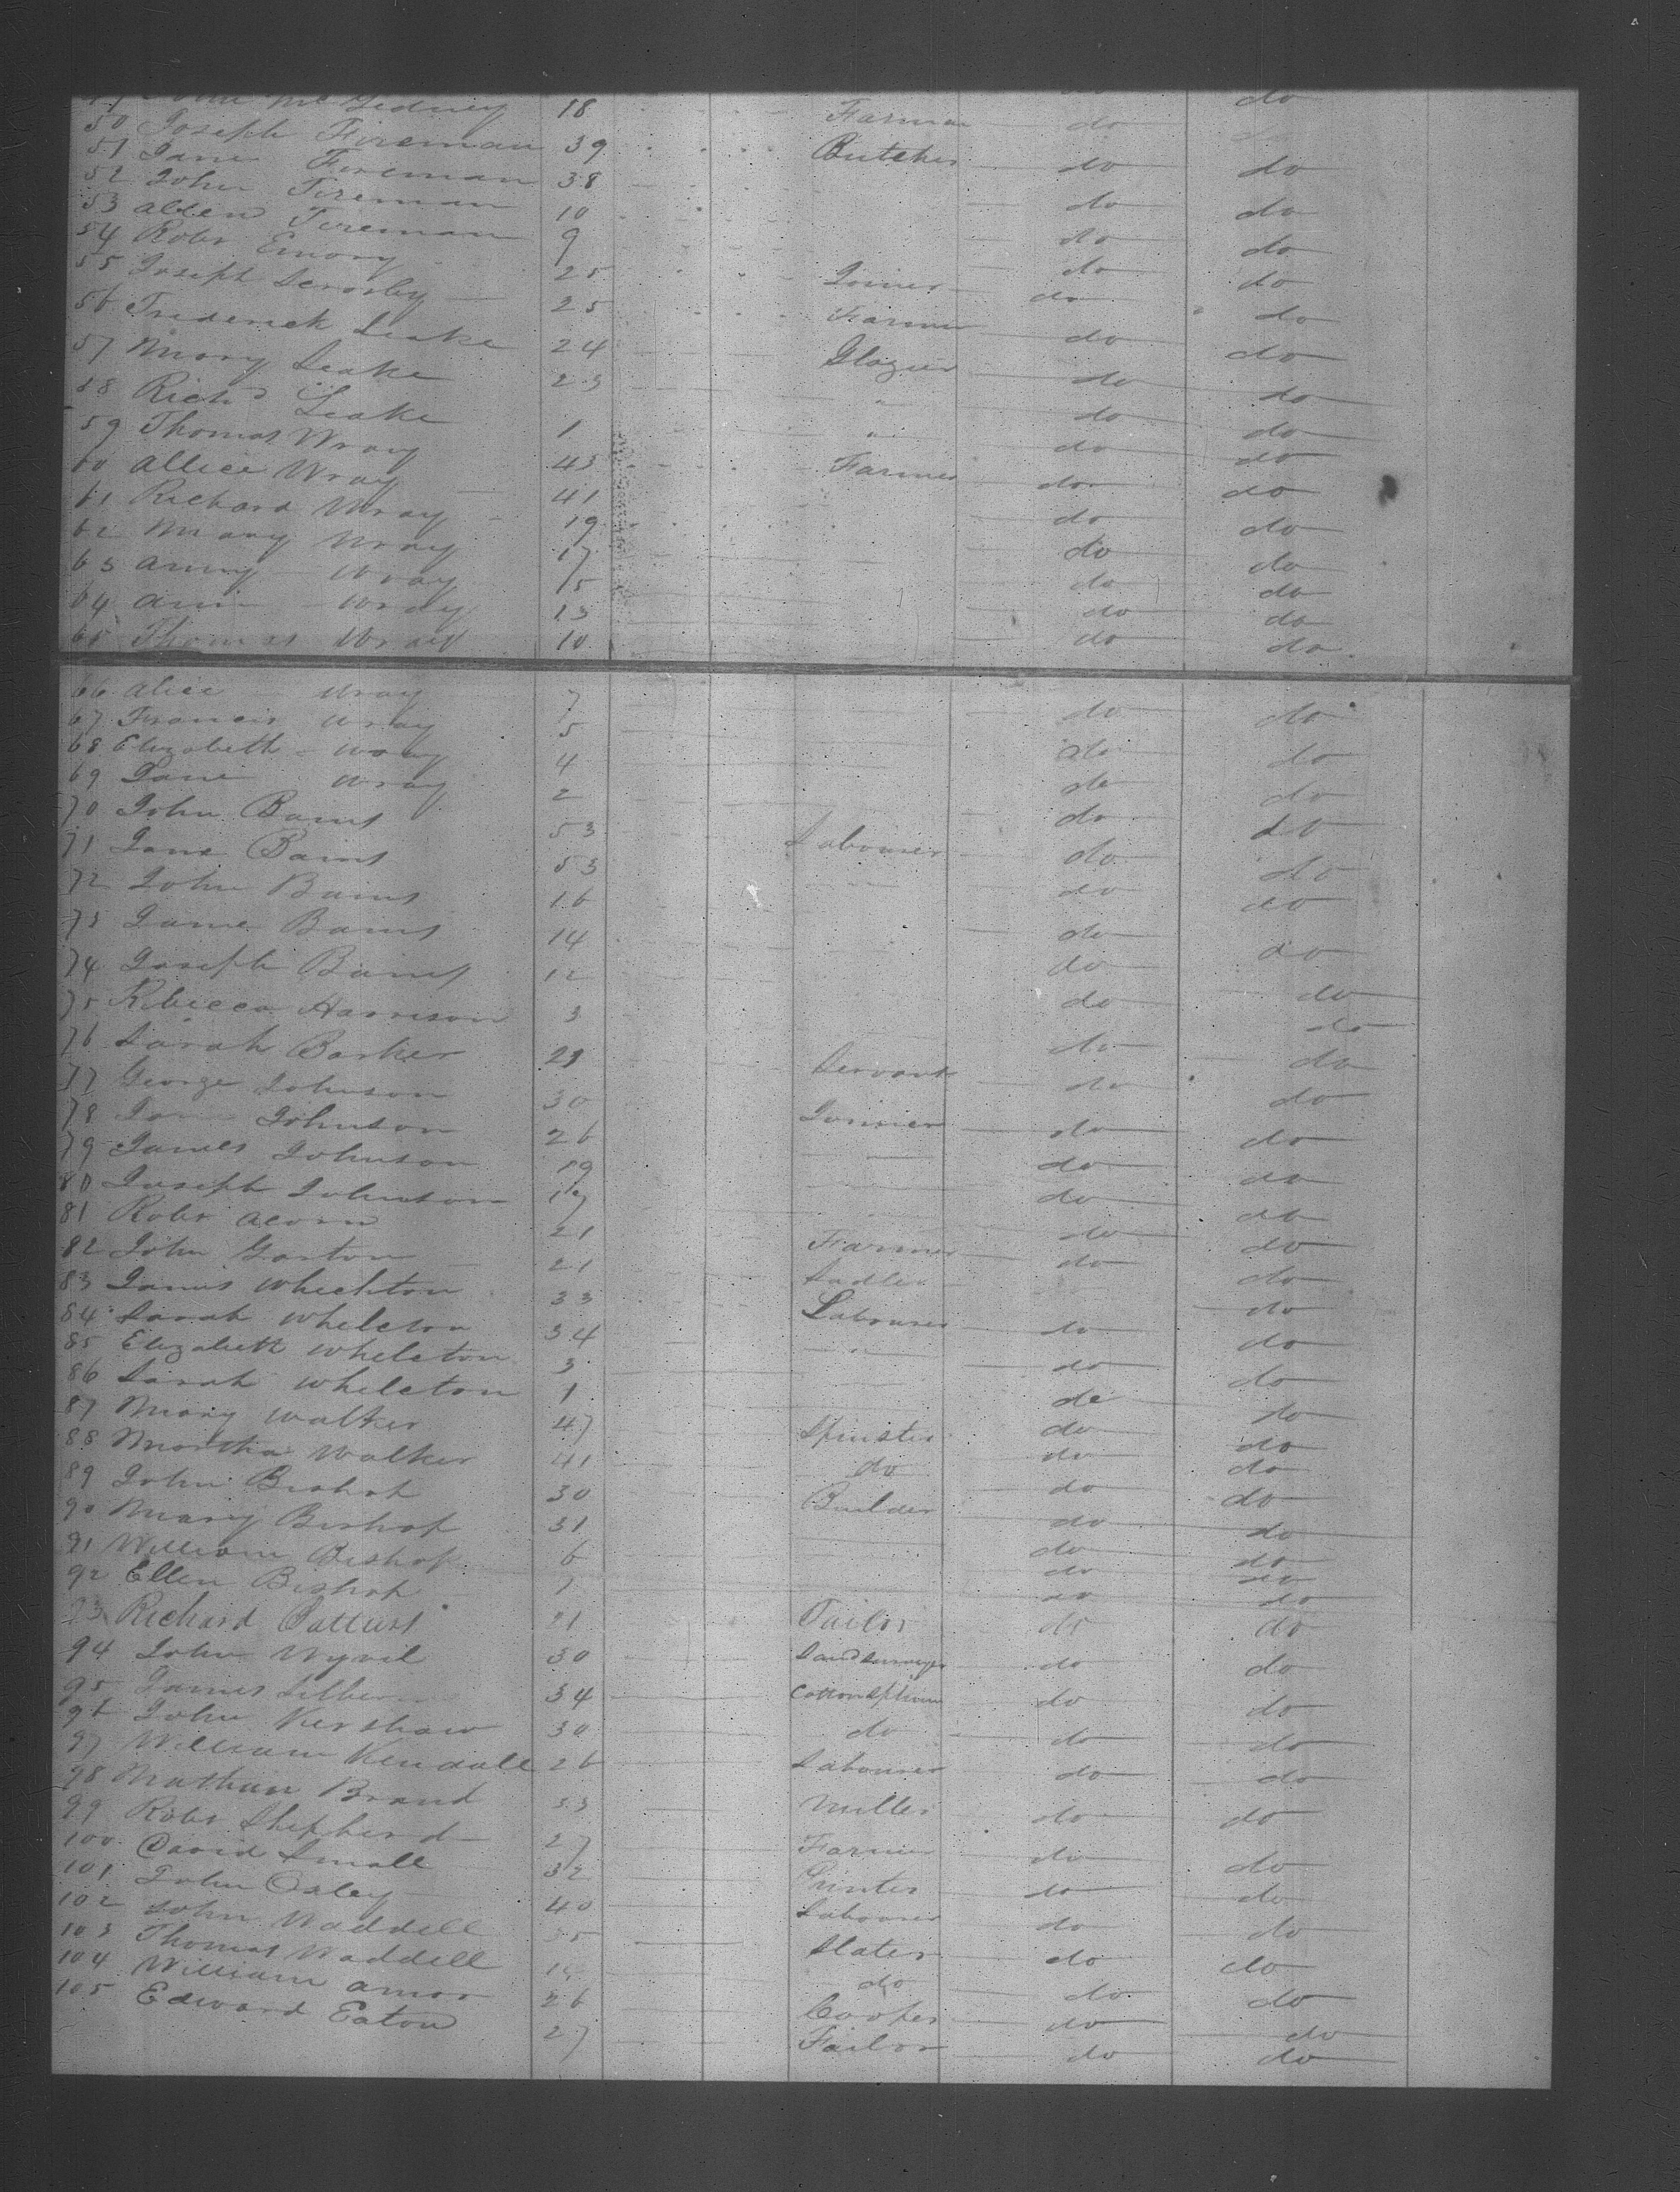 18 Farmer do do
50 Joseph Fireman 39 Butcher do do
51 Jane Fireman 38 do do
52 John Fireman 10 do do
53 Allen Fireman 9 do do
54 Robt Emory 25 Joiner do do
55 Joseph 25 Farmer do do
56 Frederick Leake 24 Glazier do do
57 Mary Leake 23 " do do
58 Richd Leake 1 " do do
59 Thomas Wray 43 Farmer do do
60 Allice Wray 41 do do
61 Richard Wray 19 do do
62 Mary Wray 17 do do
63 Amy Wray 15 do do
64 Ann Wray 13 do do
65 Thomas Wray 10 do do
66 Alice Wray 7 do do
67 Francis Wray 5 do do
68 Elizabeth Wray 4 do do
69 Jane Wray 2 do do
70 John Barns 53 Labourer do do
71 Jane Barns 53 do do
72 John Barns 16 do do
73 Jane Barns 14 do do
74 Joseph Barns 12 do do
75 Rebecca Harrison 3 do do
76 Sarah Barker 21 Servant do do
77 George Johnson 30 Joiner do do
78 Johnson 26 do do
79 James Johnson 19 do do
80 Joseph Johnston 17 do do
81 Robt Acorn 21 Farmer do do
82 John Garton 21 Sadler do
83 James Wheelton 33 Labourer do do
84 Sarah Wheleton 34 " do do
85 Elizabeth Wheleton 3 do do
86 Sarah Wheleton 1 do do
87 Mary Walker 47 Spinster do do
88 Martha Walker 41 do do do
89 John Bishop 30 Builder do do
90 Mary Bishop 31 do do
91 William Bishop 6 do do
92 Ellen Bishop 1 do do
93 Richard 21 Tailor do do
94 John Wyvil 30 Land Surveyor do do
95 James 34 Cotton Spinner do do
96 John Kershaw 30 do do do
97 William Kendall 26 Labourer do do
98 Nathan Brand 33 Miller do do
99 Robt Shepherd 27 Farmer do do
100 David Small 32 Printer do do
101 John Oxley 40 Labourer do do
102 John Waddell 35 Slater do do
103 Thomas Waddell do do do
104 William Amor 26 Cooper do do
105 Edward Eaton 27 Tailor do do